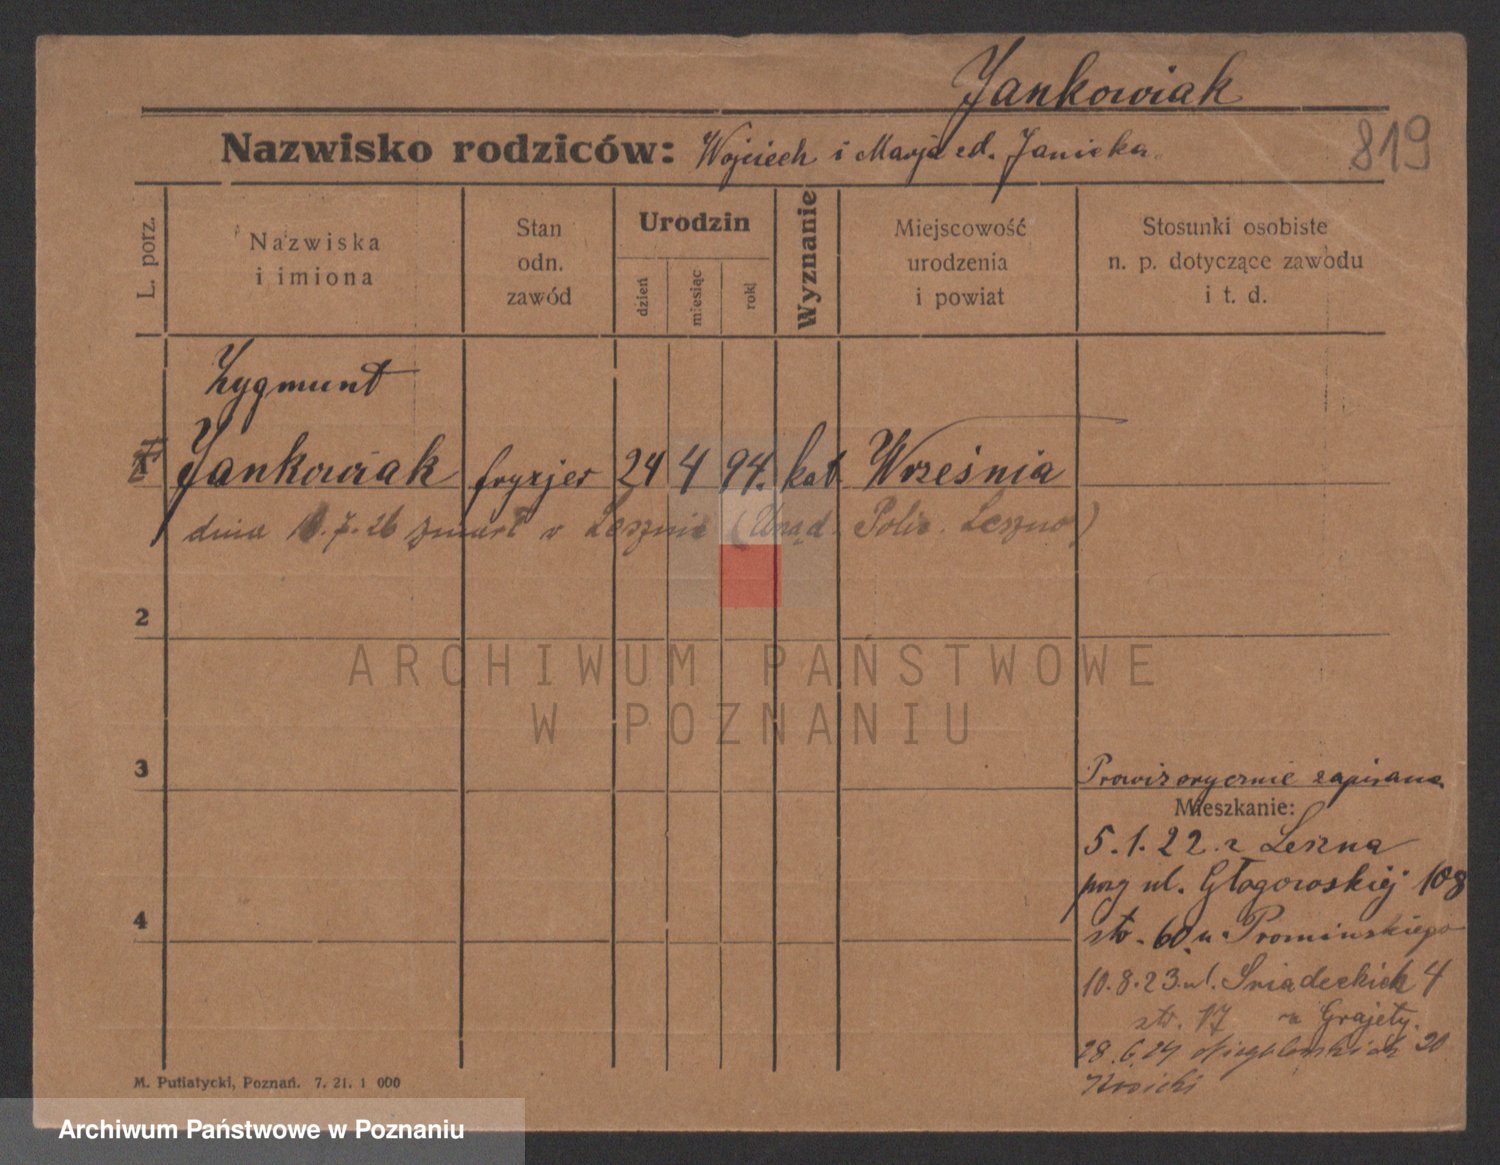 Jankowiak
Nazwisko rodziców: Wojciech i Marja zd. Janicka
819
L. porz.
Nazwiska i imiona
Stan odn. zawód
Urodzin
dzień
miesiąc
rok
Wyznanie
Miejscowość urodzenia i powiat
Stosunki osobiste n. p. dotyczące zawodu i t. d.
Zygmunt
1 Jankowiak fryzjer 24 4 94. kat Września
dnia 7.26 zmarł w Lesznie (Urząd. Polic. Leszno)
2
ARCHIWUM PAŃSTWOWE
W POZNANIU
3
Prowizorycznie zapisana
Mieszkanie:
5.1.22. z Leszna
przy ul. Głogowskiej 108
4
str. 60 u Promińskiego
10.8.23. ul. Śniadeckich 4
str. 17 u Grajety.
28.6.24 20
M. Putiatycki, Poznań. 7. 21. 1 000
Archiwum Państwowe w Poznaniu